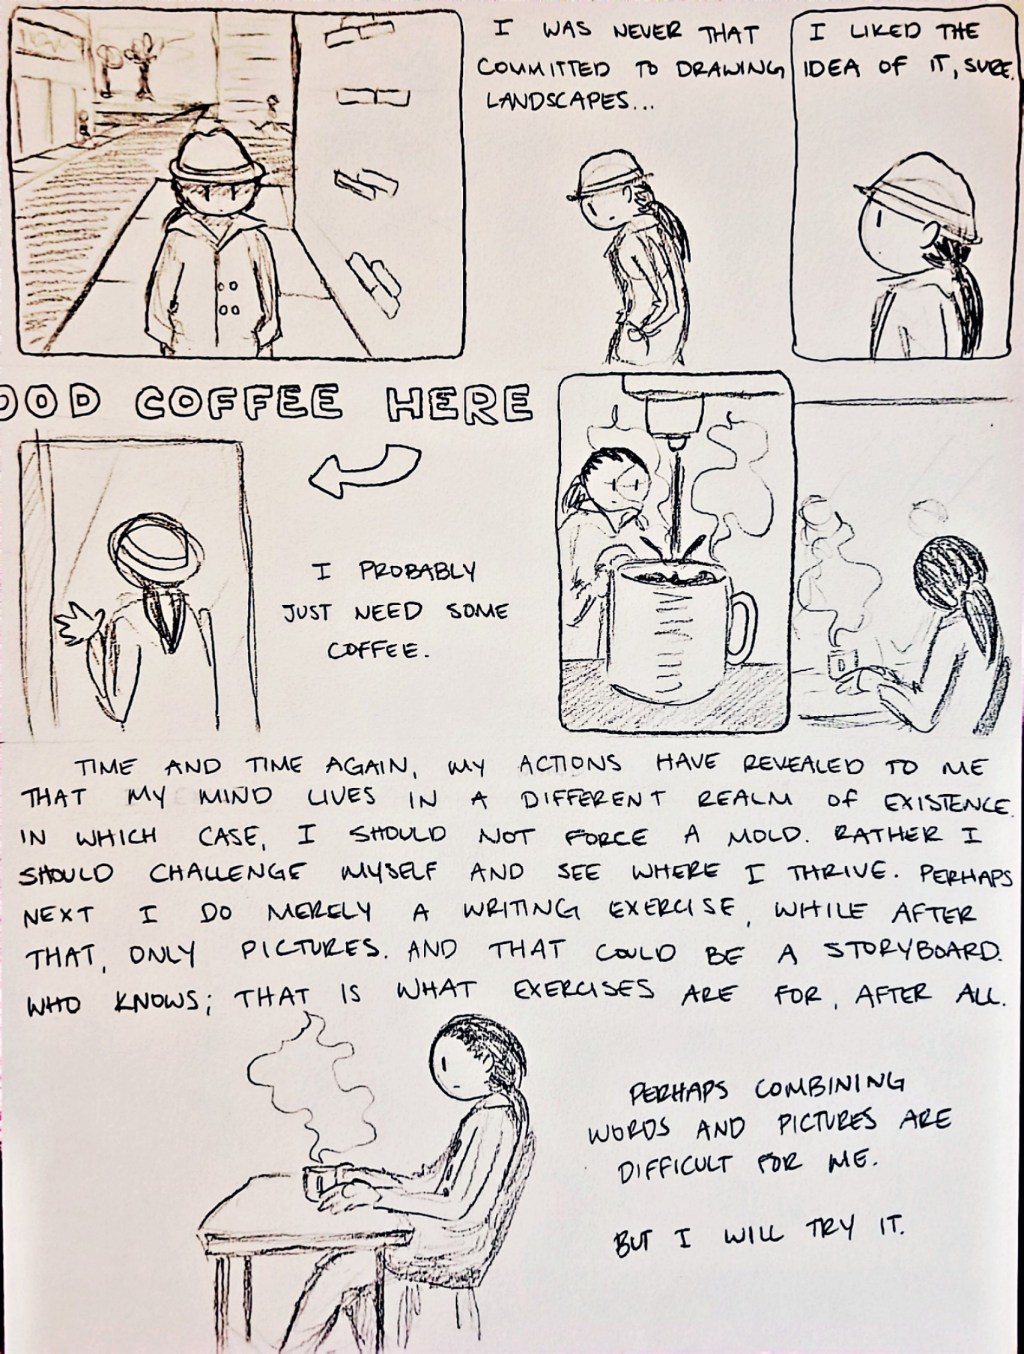 I WAS NEVER THAT
COMMITTED TO DRAWING
LANDSCAPES...
I LIKED THE
IDEA OF IT, SURE.
OOD COFFEE HERE
I PROBABLY
JUST NEED SOME
COFFEE.
TIME AND TIME AGAIN, MY ACTIONS HAVE REVEALED TO ME
THAT MY MIND LIVES IN A DIFFERENT REALM OF EXISTENCE.
IN WHICH CASE, I SHOULD NOT FORCE A MOLD. RATHER I
SHOULD CHALLENGE MYSELF AND SEE WHERE I THRIVE. PERHAPS
NEXT I DO MERELY A WRITING EXERCISE, WHILE AFTER
THAT, ONLY PICTURES. AND THAT COULD BE A STORYBOARD.
WHO KNOWS; THAT IS WHAT EXERCISES ARE FOR, AFTER ALL.
PERHAPS COMBINING
WORDS AND PICTURES ARE
DIFFICULT FOR ME.
BUT I WILL TRY IT.